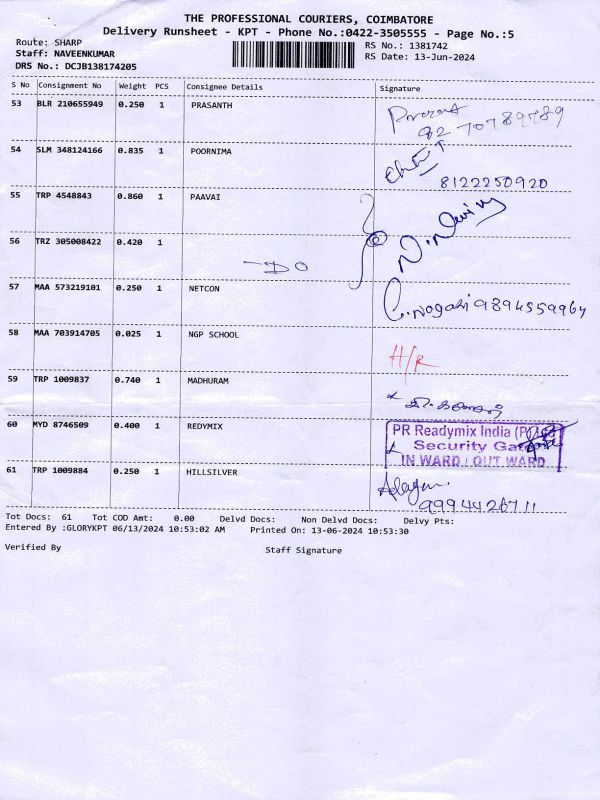 THE PROFESSIONAL COURIERS, COIMBATORE
Delivery Runsheet - KPT - Phone No.:0422-3505555 - Page No.:5
Route: SHARP
Staff: NAVEENKUMAR
DRS No.: DCJB138174205
RS No.: 1381742
RS Date: 13-Jun-2024
S No Consignment No Weight PCS Consignee Details Signature
53 BLR 210655949 0.250 1 PRASANTH
54 SLM 348124166 0.835 1 POORNIMA
8122250920
55 TRP 4548843 0.860 1 PAAVAI
56 TRZ 305008422 0.420 1
DO
57 MAA 573219101 0.250 1 NETCON
58 MAA 703914705 0.025 1 NGP SCHOOL
H/R
59 TRP 1009837 0.740 1 MADHURAM
60 MYD 8746509 0.400 1 REDYMIX
PR Readymix India
Security Gate
IN WARD / OUT WARD
61 TRP 1009884 0.250 1 HILLSILVER
Tot Docs: 61 Tot COD Amt: 0.00 Delvd Docs: Non Delvd Docs: Delvy Pts:
Entered By :GLORYKPT 06/13/2024 10:53:02 AM Printed On: 13-06-2024 10:53:30
Verified By Staff Signature